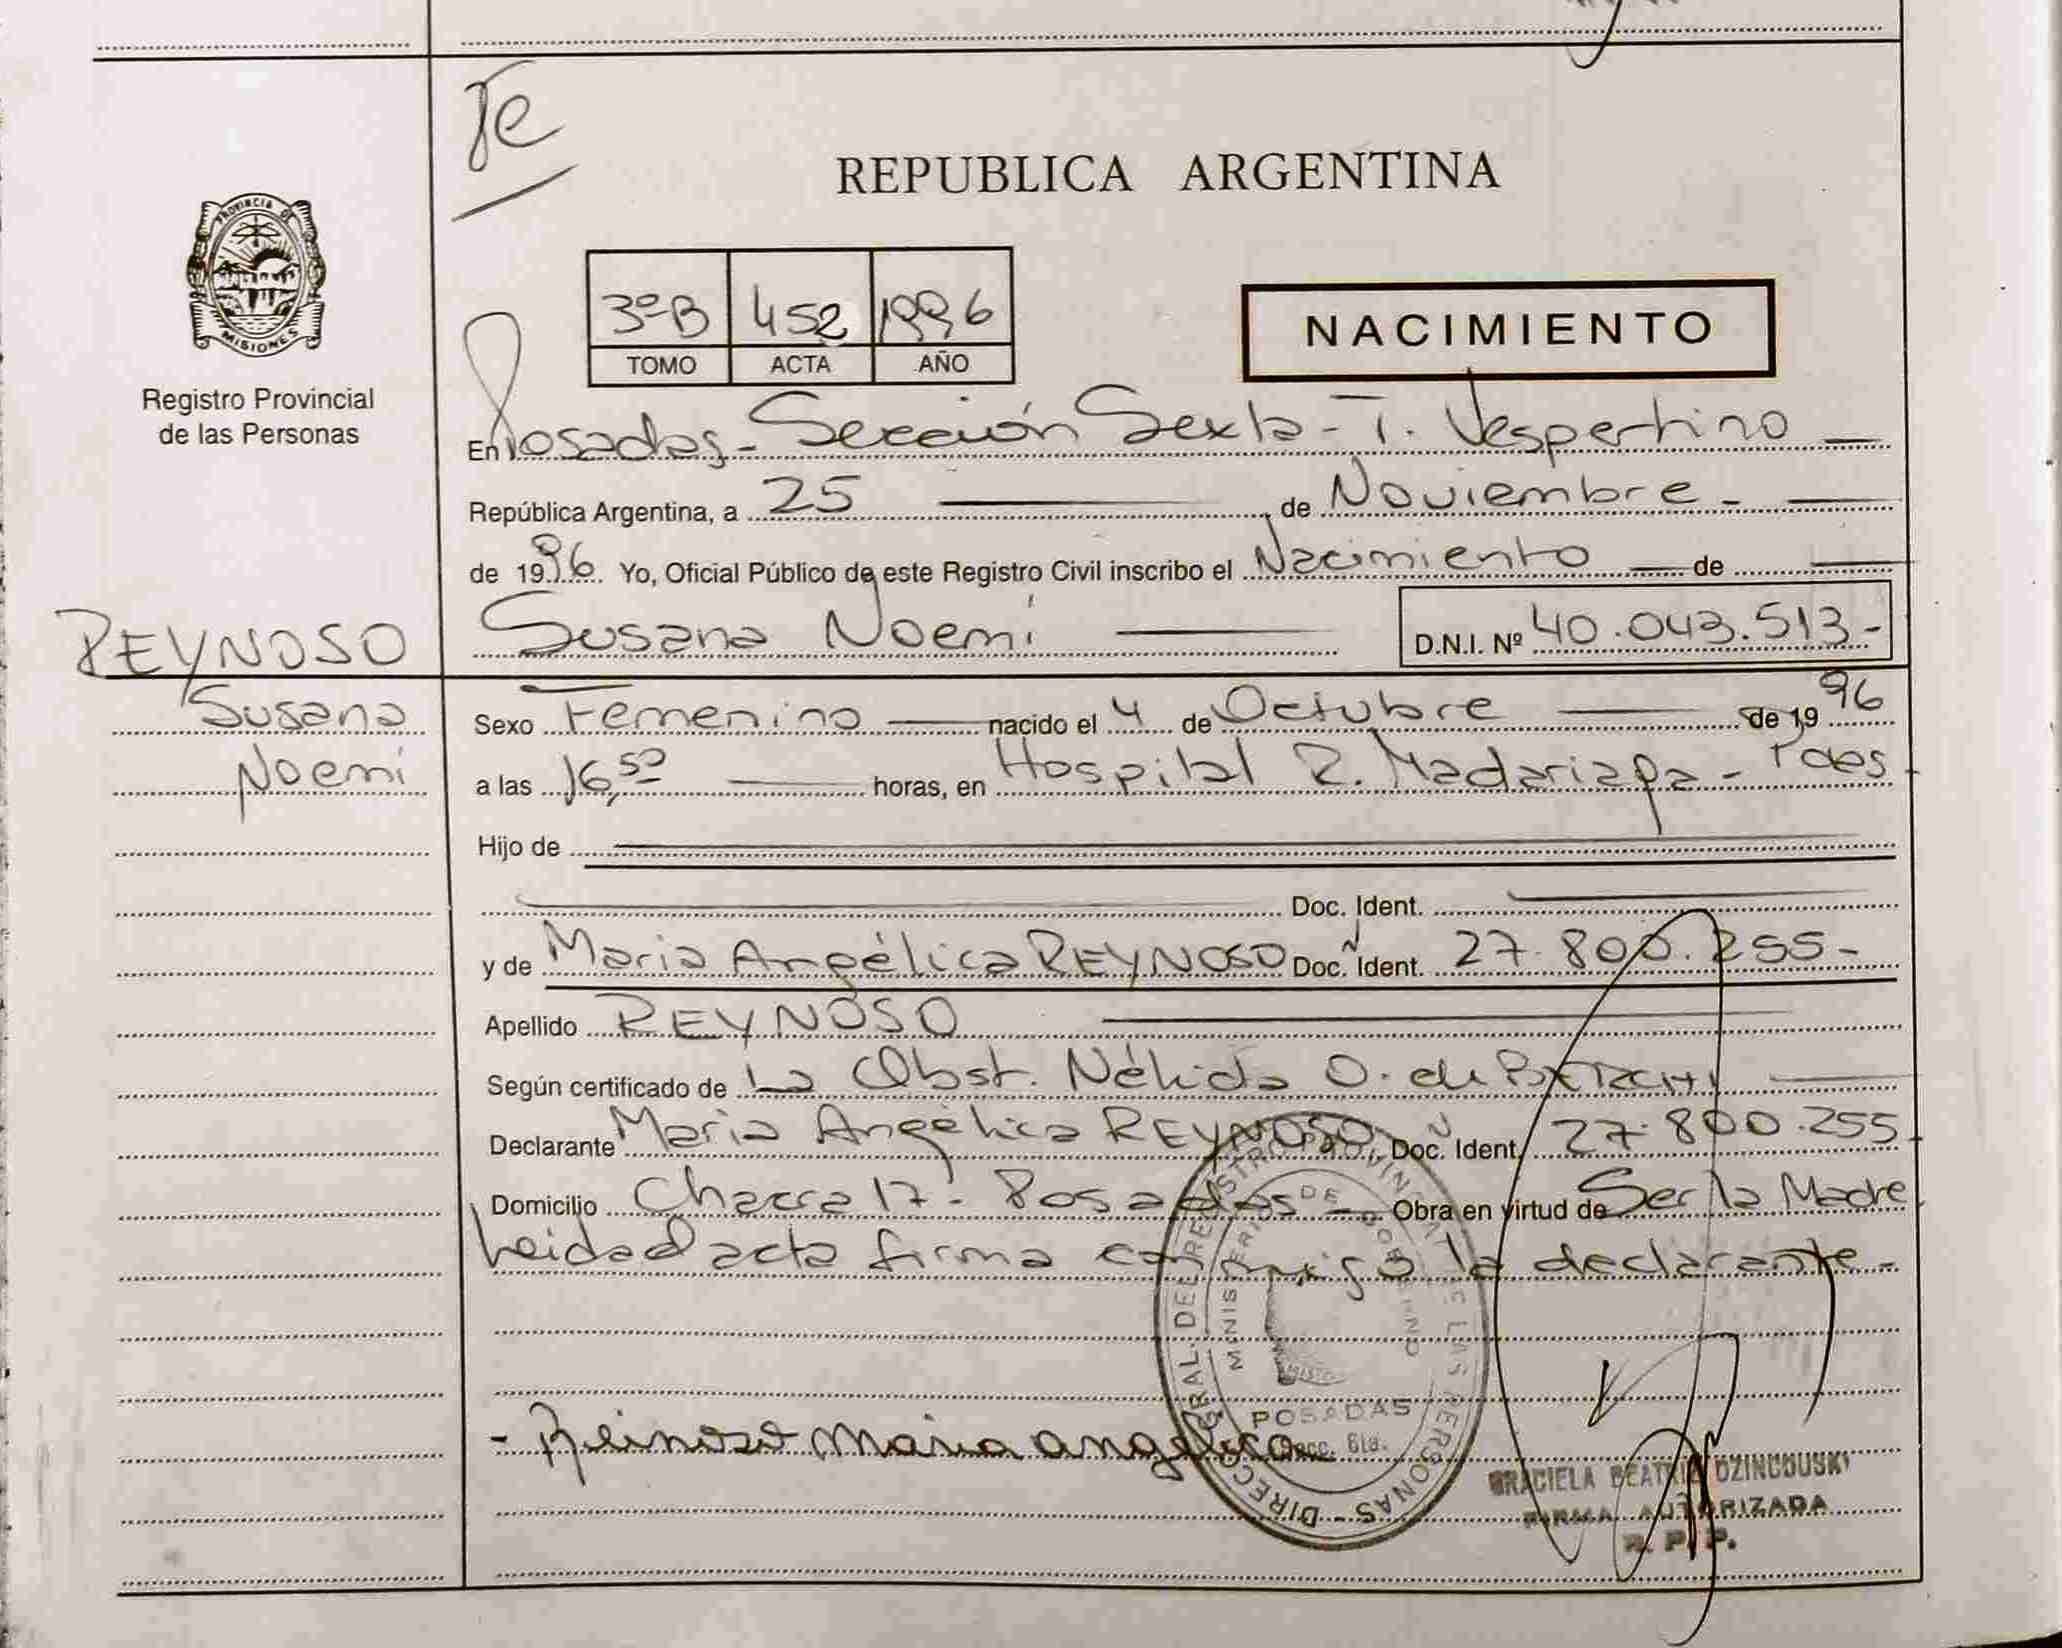 Te
PROVINCIA DE
MISIONES
Registro Provincial
de las Personas
REPUBLICA ARGENTINA
3º B 452 1996
TOMO ACTA AÑO
NACIMIENTO
En Posadas - Sección Sexta - T. Vespertino
República Argentina, a 25 de Noviembre -
de 1996 Yo, Oficial Público de este Registro Civil inscribo el Nacimiento de
REYNOSO Susana Noemi D.N.I. Nº 40.043.513-
Susana Sexo Femenino nacido el 4 de Octubre de 1996
Noemi a las 16,50 horas, en Hospital R. Madariaga - Pdas.
Hijo de
Doc. Ident.
y de Maria Angélica REYNOSO Doc. Ident. 27.800.255-
Apellido REYNOSO
Según certificado de La Obst. Nélida O. de
Declarante Maria Angélica REYNOSO Doc. Ident. 27.800.255
Domicilio Chacra 17 - Posadas - Obra en virtud de Ser la Madre
Leida el acta firma conmigo la declarante -
- Reinoso Maria angelica
DIRECC. GRAL. DEL REGISTRO PROVINCIAL DE LAS PERSONAS -
MINISTERIO DE GOBIERNO
POSADAS
Secc. 6ta.
GRACIELA BEATRIZ
FIRMA AUTORIZADA
R. P. P.